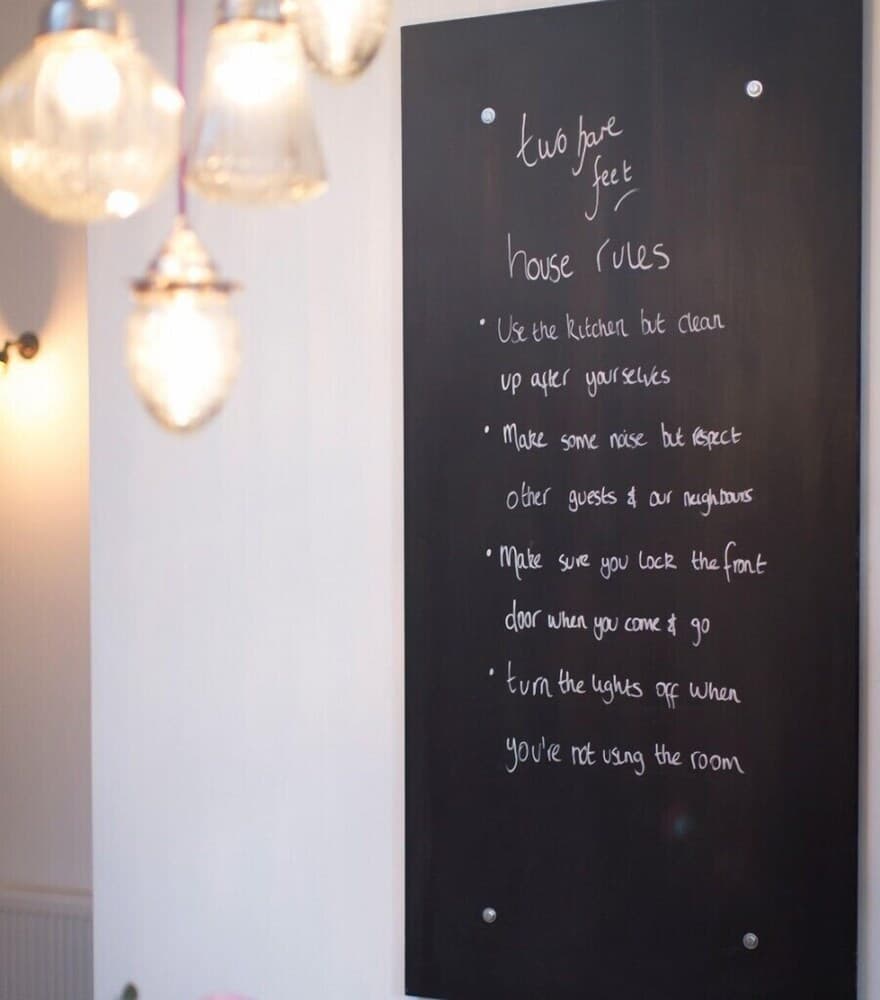 two bare
feet
house rules
• Use the kitchen but clean
up after yourselves
• Make some noise but respect
other guests & our neighbours
• Make sure you lock the front
door when you come & go
• turn the lights off when
you're not using the room